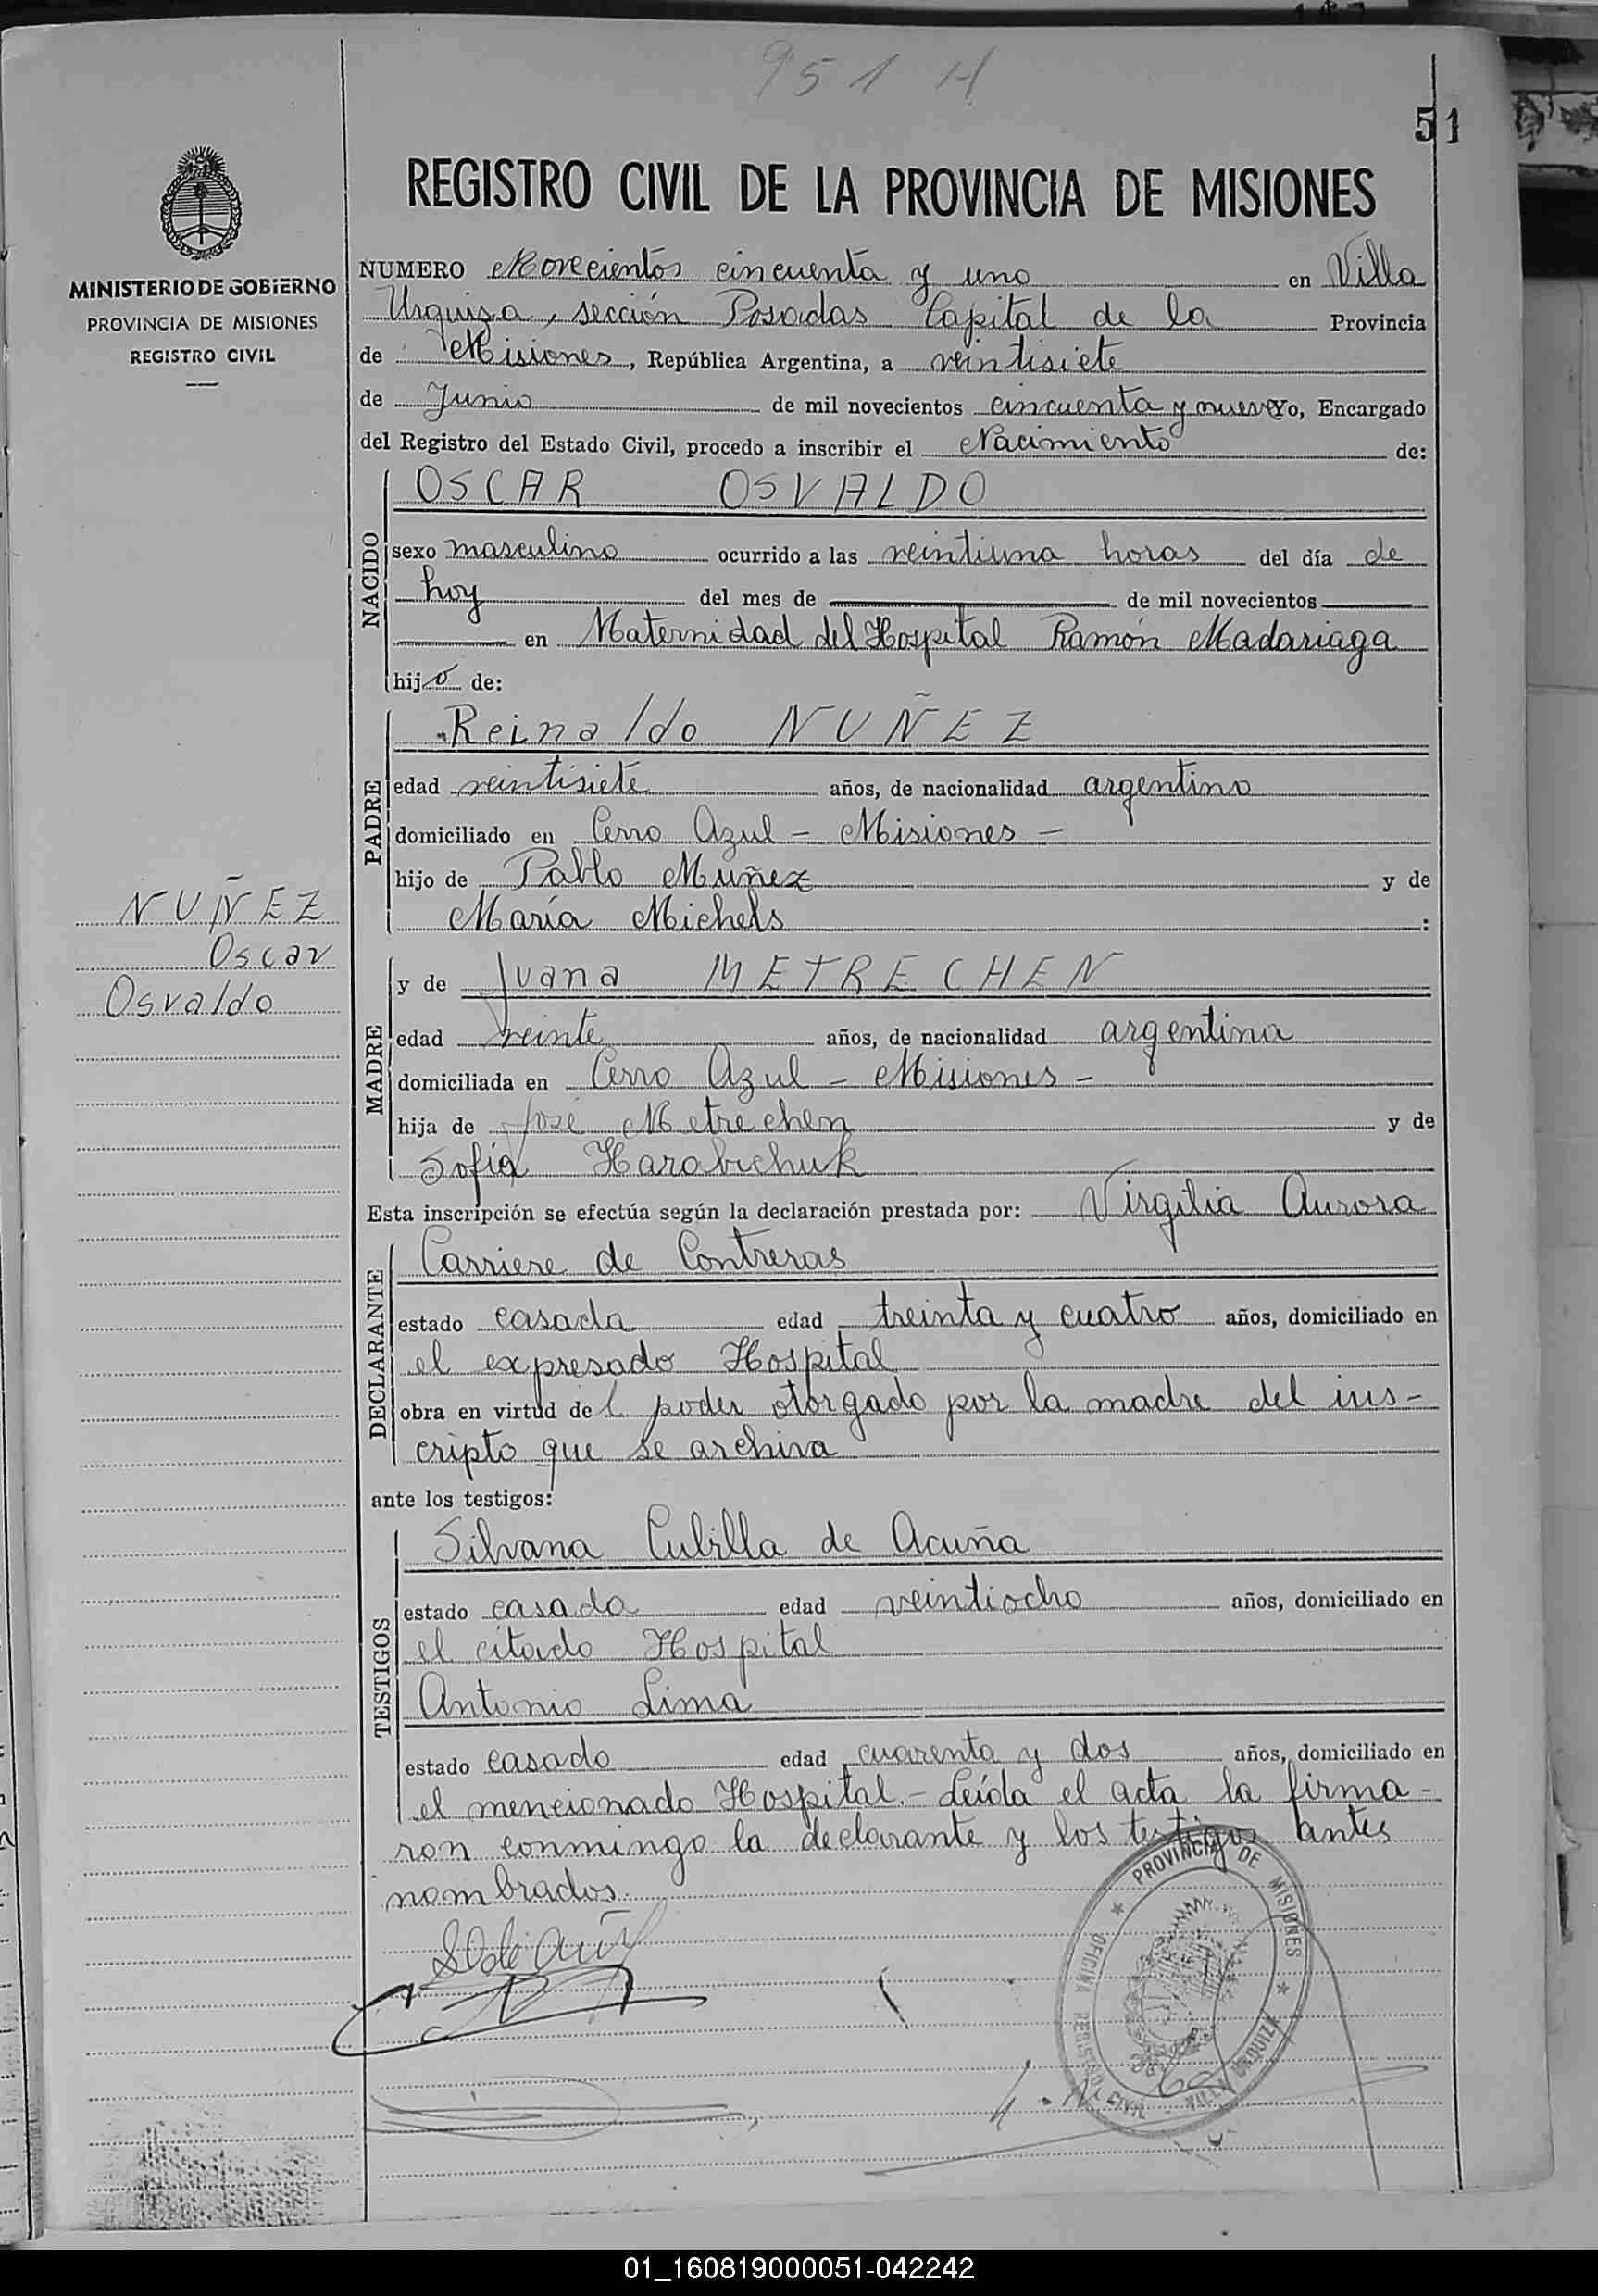 951 H
51
MINISTERIO DE GOBIERNO
PROVINCIA DE MISIONES
REGISTRO CIVIL
REGISTRO CIVIL DE LA PROVINCIA DE MISIONES
NUMERO Novecientos cincuenta y uno en Villa
Urquiza, sección Posadas Capital de la Provincia
de Misiones, República Argentina, a veintisiete
de Junio de mil novecientos cincuenta y nueve Yo, Encargado
del Registro del Estado Civil, procedo a inscribir el Nacimiento de:
NACIDO
OSCAR OSVALDO
sexo masculino ocurrido a las veintiuna horas del día de
hoy del mes de de mil novecientos
en Maternidad del Hospital Ramón Madariaga
hijo de:
PADRE
Reinaldo NUÑEZ
edad veintisiete años, de nacionalidad argentino
domiciliado en Cerro Azul - Misiones -
hijo de Pablo Nuñez y de
María Michels :
NUÑEZ
Oscar
Osvaldo
MADRE
y de Juana METRECHEN
edad veinte años, de nacionalidad argentina
domiciliada en Cerro Azul - Misiones -
hija de José Metrechen y de
Sofía Harabichuk
Esta inscripción se efectúa según la declaración prestada por: Virgilia Aurora
DECLARANTE
Carriere de Contreras
estado casada edad treinta y cuatro años, domiciliado en
el expresado Hospital
obra en virtud del poder otorgado por la madre del ins-
cripto que se archiva
ante los testigos:
TESTIGOS
Silvana Cubilla de Acuña
estado casada edad veintiocho años, domiciliado en
el citado Hospital
Antonio Lima
estado casado edad cuarenta y dos años, domiciliado en
el mencionado Hospital.- Leída el acta la firma-
ron conmingo la declarante y los testigos antes
nombrados.
PROVINCIA DE MISIONES
OFICINA REGISTRO CIVIL - VILLA URQUIZA
01_160819000051-042242